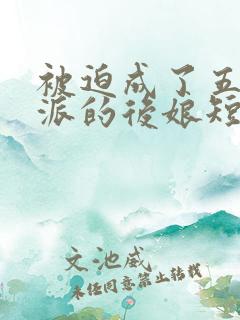 被迫成了五
派的後娘短
文池威
未经同意禁止转载